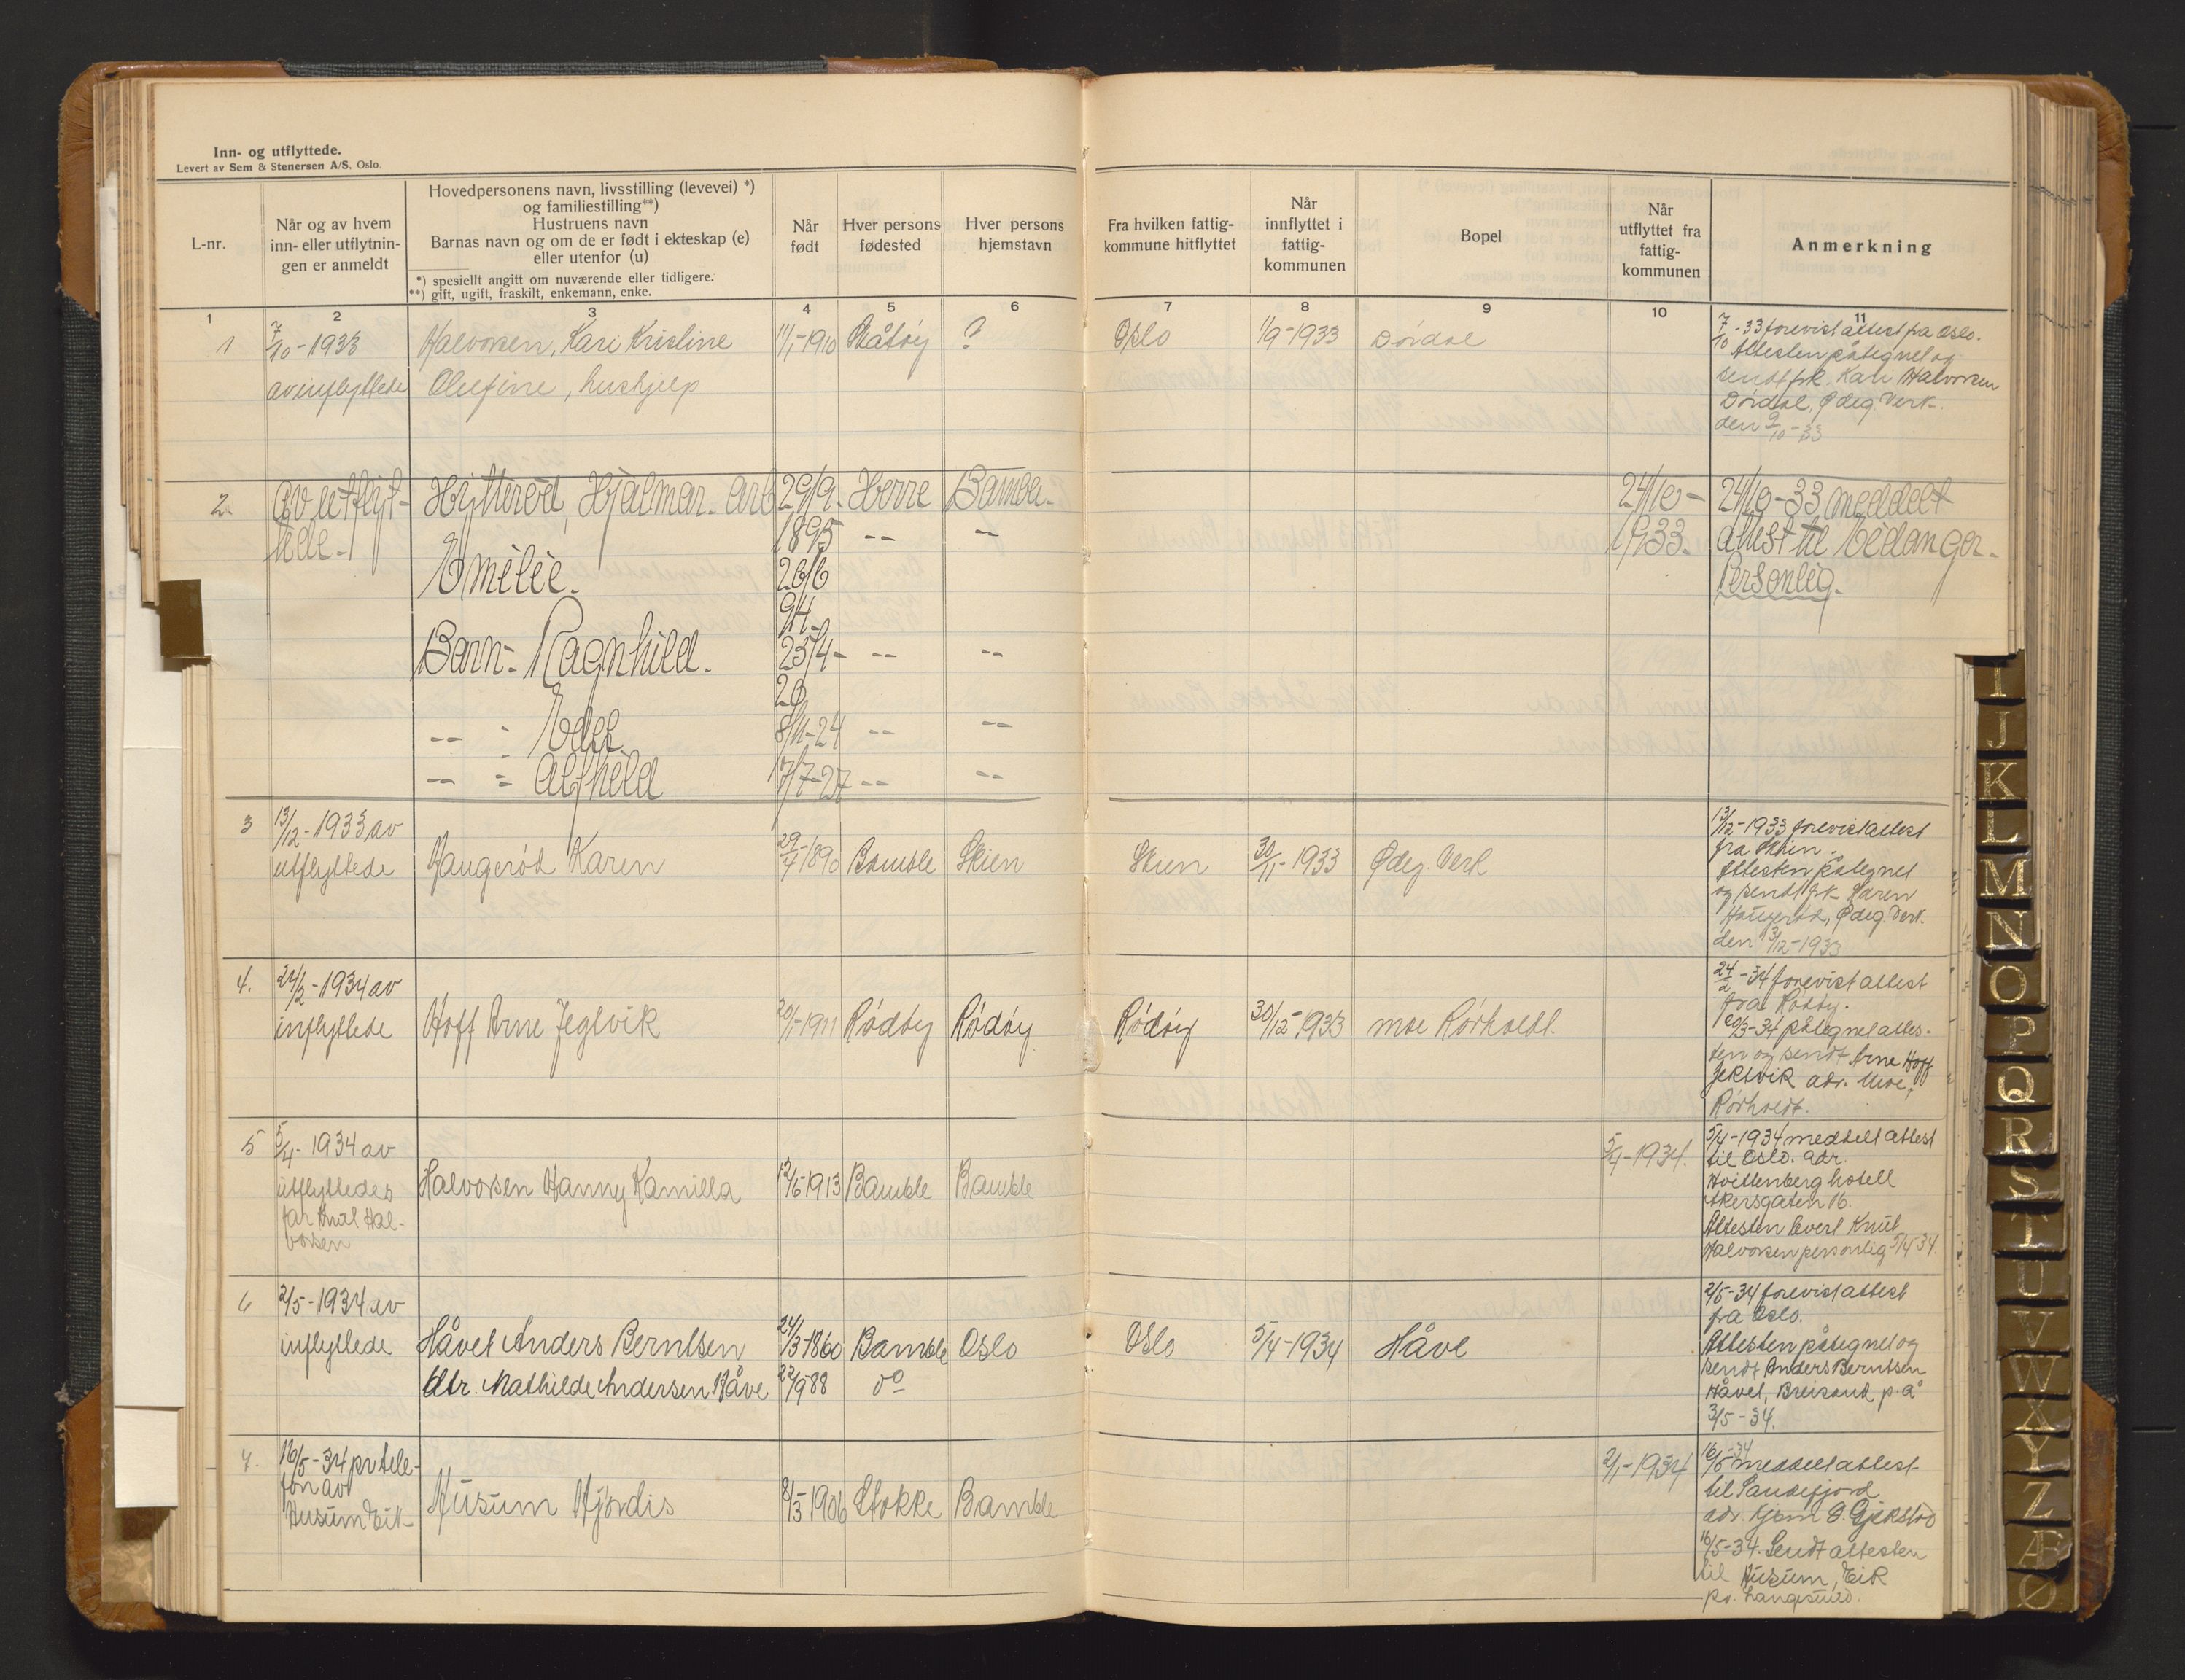 Inn- og utflyttede.
Levert av Sem & Stenersen A/S. Oslo.
L-nr.
Når og av hvem
inn- eller utflytnin-
gen er anmeldt
Hovedpersonens navn, livsstilling (levevei) *)
og familiestilling**)
Hustruens navn
Barnas navn og om de er født i ekteskap (e)
eller utenfor (u)
*) spesiellt angitt om nuværende eller tidligere.
**) gift, ugift, fraskilt, enkemann, enke.
Når
født
Hver persons
fødested
Hver persons
hjemstavn
Fra hvilken fattig-
kommune hitflyttet
Når
innflyttet i
fattig-
kommunen
Bopel
Når
utflyttet fra
fattig-
kommunen
Anmerkning
1 2 3 4 5 6 7 8 9 10 11
1
7/10-1933
av inflyttede
Halvorsen, Kari Kristine
Olefine, hushjelp
11/1-1910
Skåtøy
?
Oslo
1/9-1933
Dørdal
7/10-33 forevist attest fra Oslo.
Attesten påtegnet og
sendt frk. Kari Halvorsen
Dørdal, Ødeg. Verk.
den 9/10-33
2.
av utflyt-
tede.
Hytterød, Hjalmar. Arb
29/9-
1895
Herre
Bamble.
Emilie.
26/6
94.
-- --
Barn:- Ragnhild.
23/4-
20
-- --
-- : Edel
8/11-24
-- --
-- = Alfhild
7/7-27
-- --
24/10-
1933.
24/10-33 meddelt
attest til Eidanger.
Personlig.
3
13/12-1933 av
utflyttede
Haugerød Karen
29/4-1890
Bamble
Skien
Skien
30/11-1933
Ødeg. Verk
13/12-1933 forevist attest
fra Skien.
Attesten påtegnet
og sendt frk. Karen
Haugerød, Ødeg. Verk.
den 13/12-1933
4.
24/2-1934 av
inflyttede
Hoff Arne Jegtvik
20/1-1911
Rødøy
Rødøy
Rødøy
30/12-1933
Moe Rørholdt.
24/2-34 forevist attest
fra Rødøy.
20/3-34 påtegnet attes-
ten og sendt Arne Hoff
Jektvik adr. Moe,
Rørholdt.
5
5/4-1934 av
utflyttedes
far Knut Hal-
vorsen
Halvorsen Hanny Kamilla
12/5-1913
Bamble
Bamble
5/4-1934.
5/4-1934 meddelt attest
til Oslo. adr.
Hvittenberg hotell
Akersgaten 16.
Attesten levert Knut
Halvorsen personlig 5/4 34.
6
2/5-1934 av
inflyttede
Håvet Anders Berntsen
24/3-1860
Bamble
Oslo
Oslo
5/4-1934
Håve
dtr. Mathilde Andersen Håve
22/9 88
do
2/5-34 forevist attest
fra Oslo.
Attesten påtegnet og
sendt Anders Berntsen
Håvet, Breisand p.å
3/5-34.
7.
16/5-34 pr tele-
fon av
Husum Eik
Husum Hjørdis
8/3-1906
Stokke
Bamble
2/1-1934
16/5-34 meddelt attest
til Sandefjord
adr. Hjem G. Gjekstad
16/5-34. Sendt attesten
til Husum, Eik
pr. Langesund.
I
J
K
L
M
N
O
P
Q
R
S
T
U
V
W
X
Y
Z
Æ
Ø